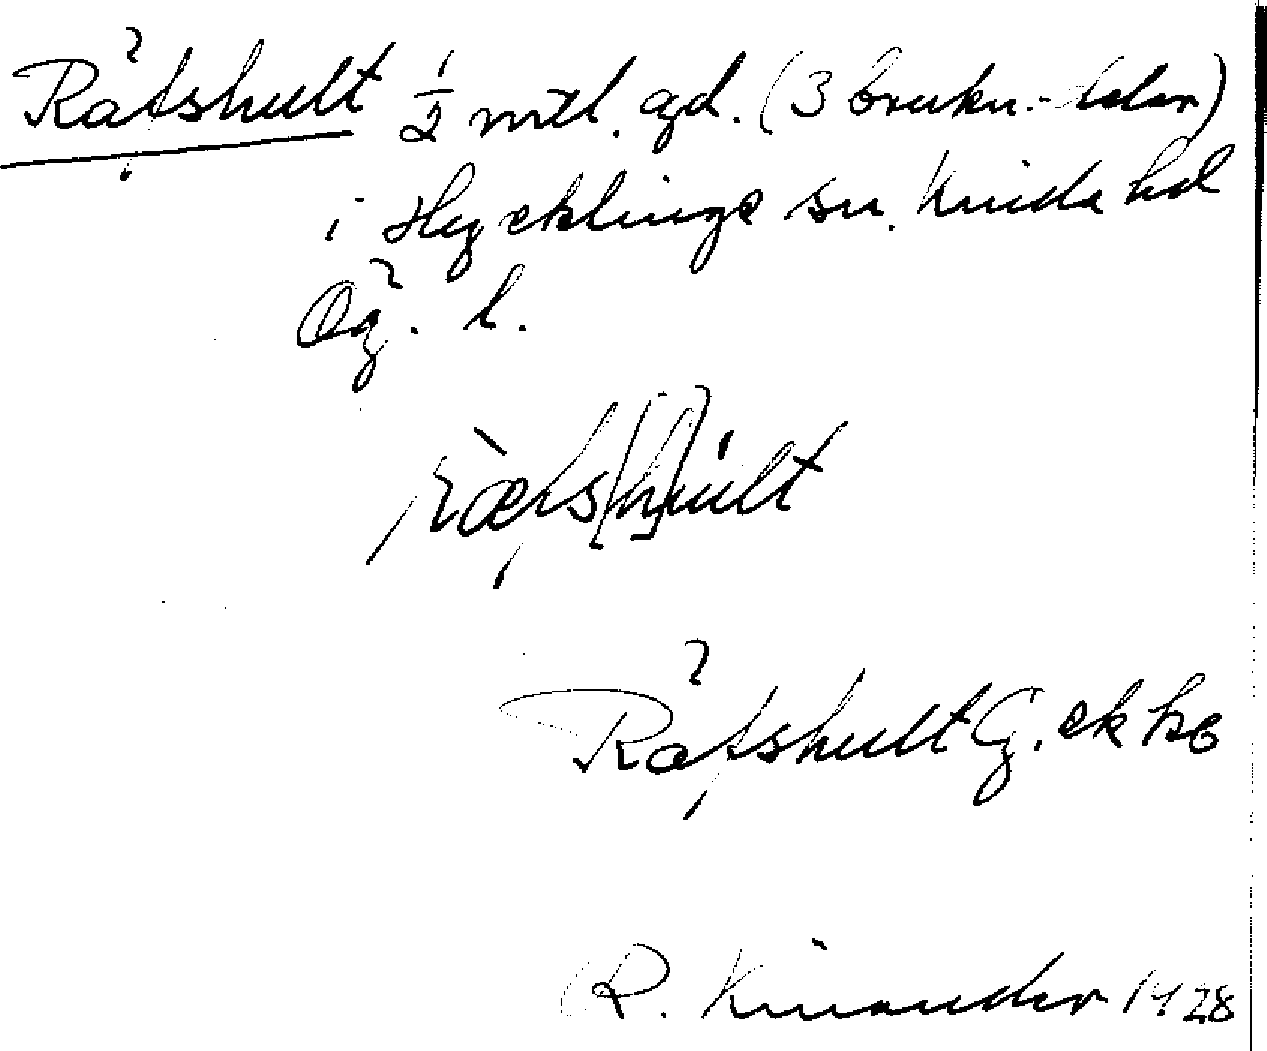 Räfshult 1/2 mtl. gd. (3 brukn.-delar)
i Hycklinge sn. Kinda hd
Ög. l.
Räfshult G. ekbl
R. Kinander 1928